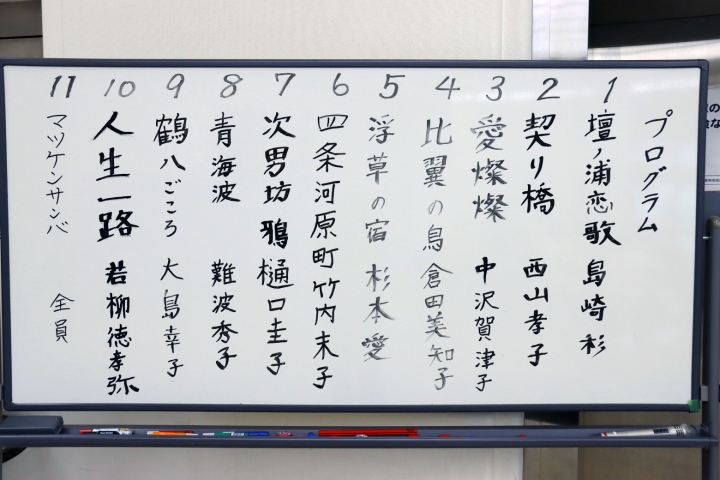 プログラム
1 壇ノ浦恋歌 島崎 彩
2 契り橋 西山孝子
3 愛燦燦 中沢賀津子
4 比翼の鳥 倉田美知子
5 浮草の宿 杉本愛
6 四条河原町 竹内末子
7 次男坊鴉 樋口圭子
8 青海波 難波秀子
9 鶴八ごころ 大島幸子
10 人生一路 若柳徳孝弥
11 マツケンサンバ 全員